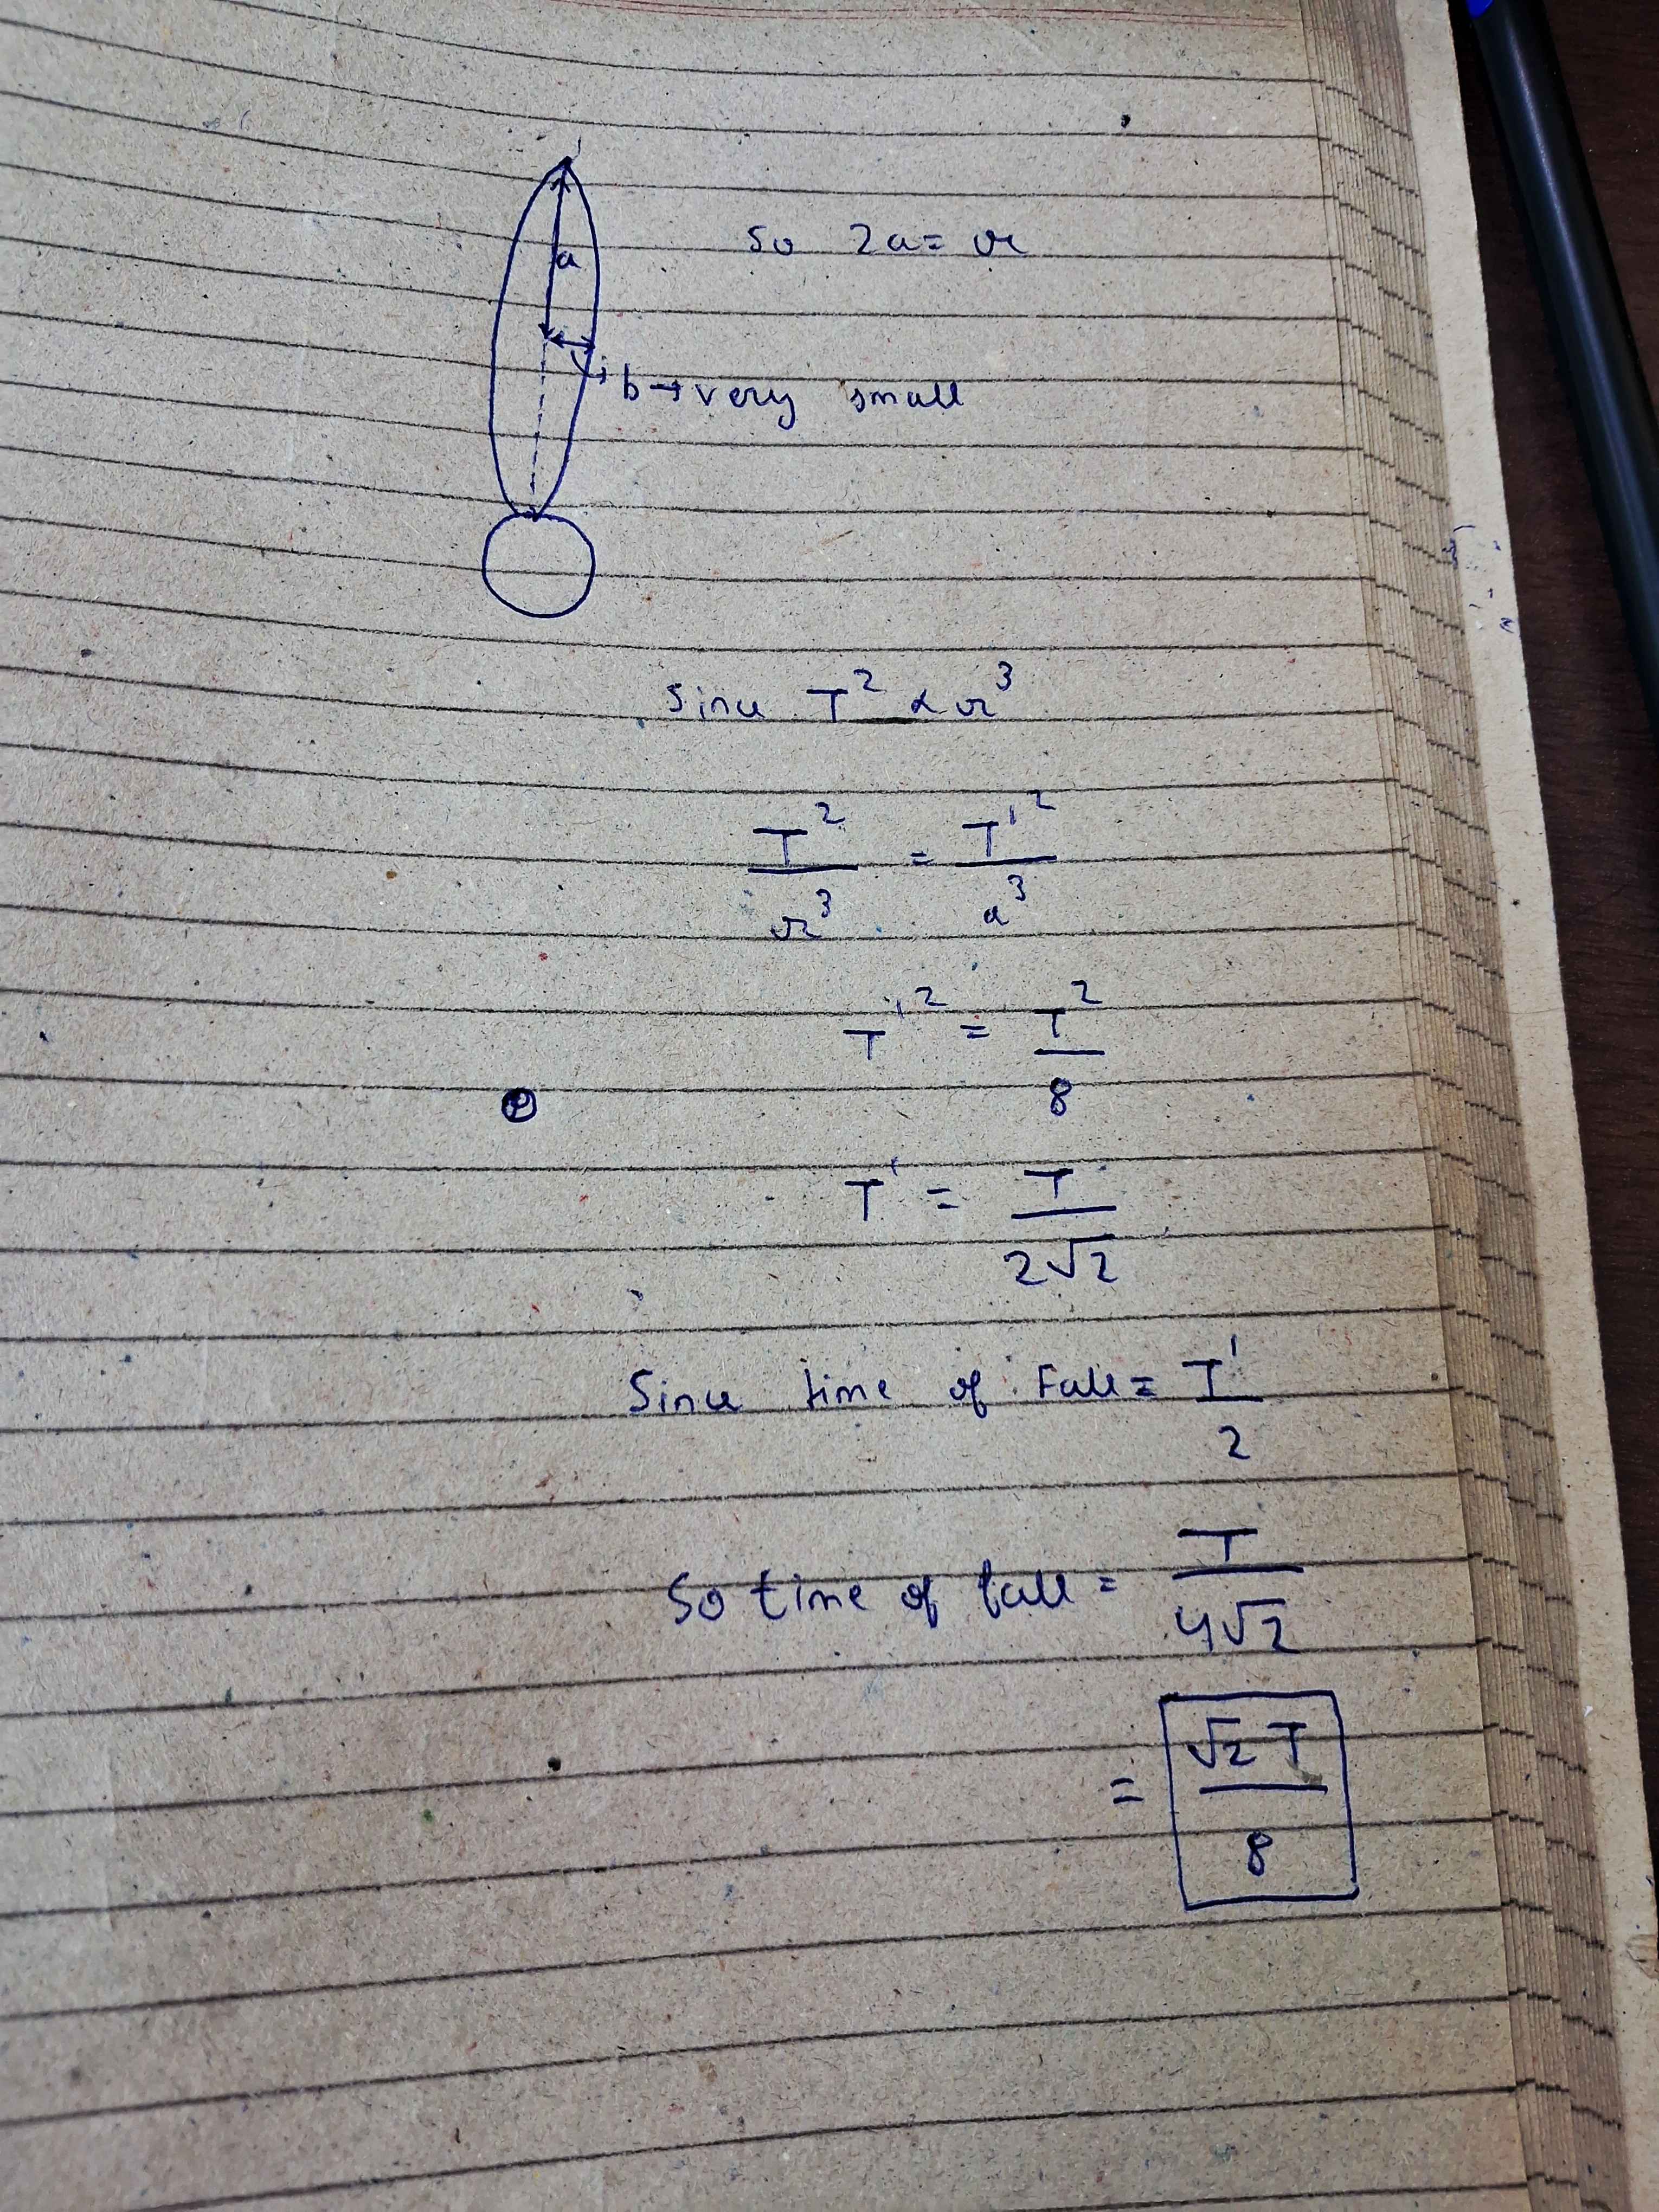 a
so 2a = r
b → very small
Since T² ∝ r³
T²/r³ = T'²/a³
T'² = T²/8
T' = T/2√2
Since time of Fall = T'/2
So time of fall = T/4√2
= √2 T/8